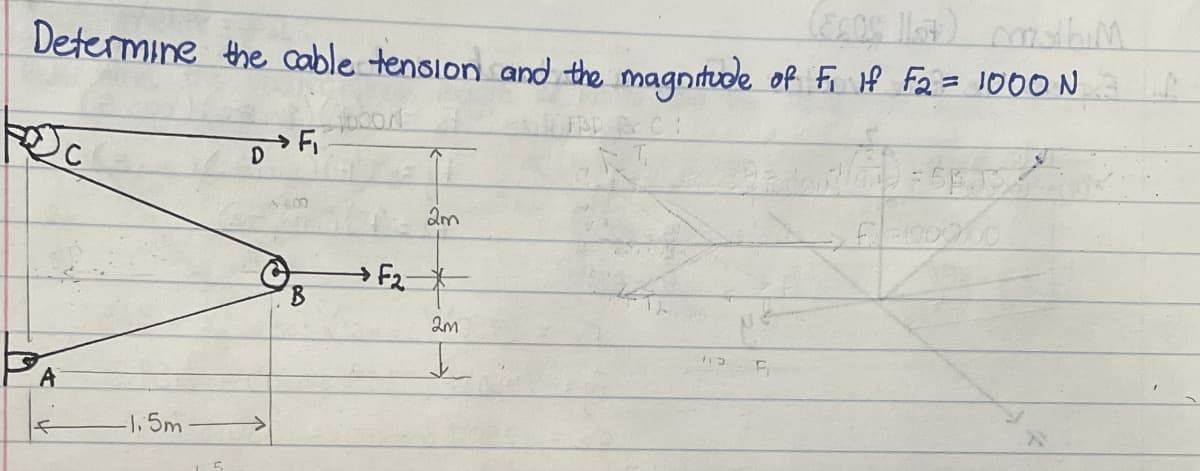 Determine the cable tension and the magnitude of F1 If F2 = 1000 N
C
D
F1
2m
B
F2
2m
A
1.5m